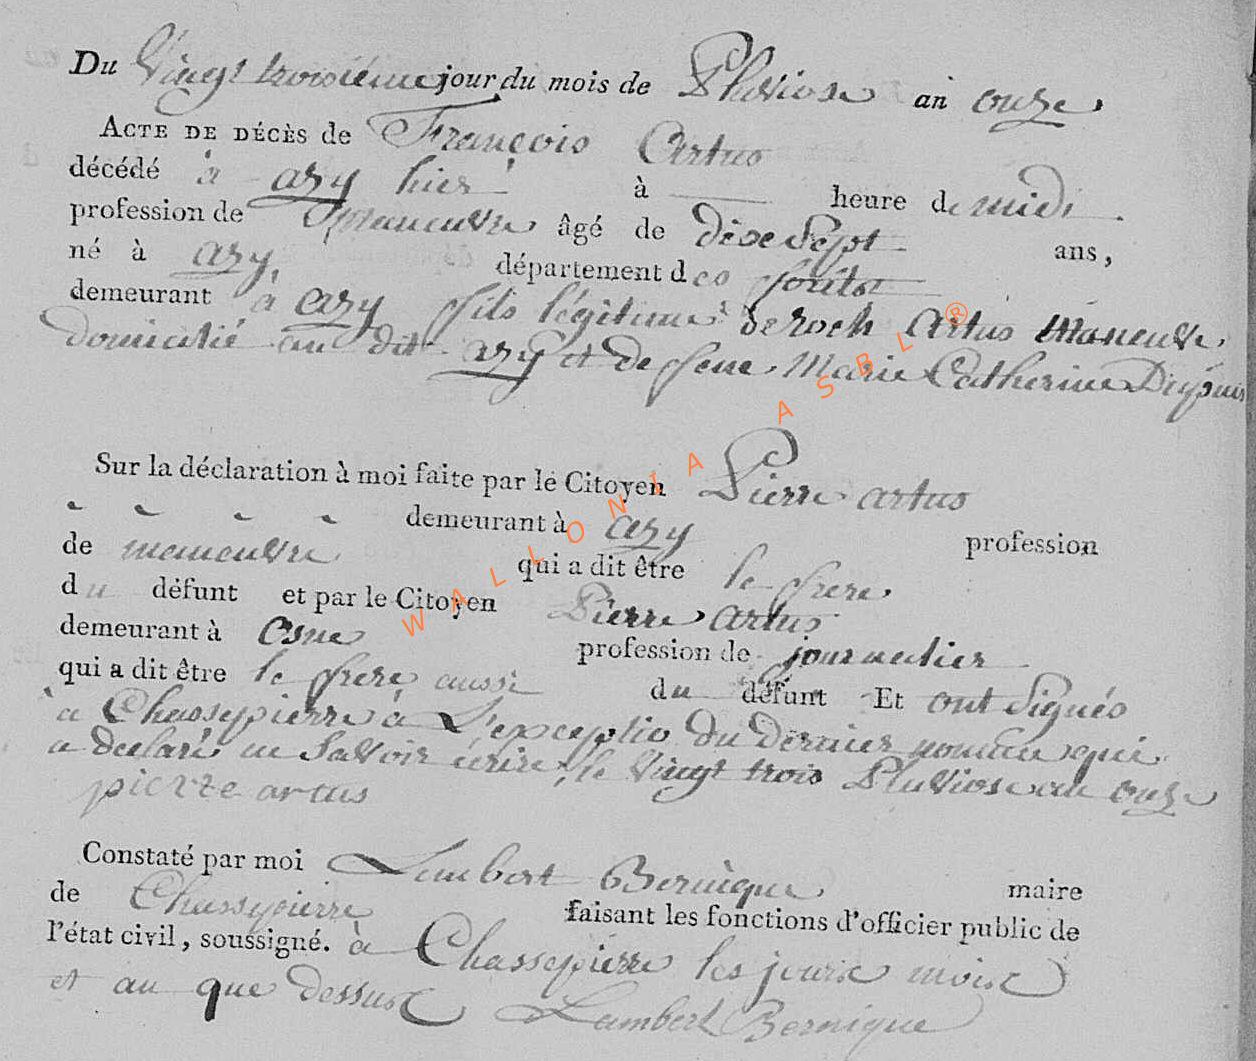 Du Vingt troisième jour du mois de Pluviose an onze
ACTE DE DÉCÈS de François Artus
décédé à azy hier à heure de midi
profession de maneuvre âgé de dixe Sept ans,
né à azy, département des foréts
demeurant à azy fils légitime de roch Artus Maneuvre
domicilié au dit azy et de feue Marie Catherine Dupuis
Sur la déclaration à moi faite par le Citoyen Pierre artus
demeurant à azy profession
de maneuvre qui a dit être le frere
du défunt et par le Citoyen Pierre artus
demeurant à Osne profession de journalier
qui a dit être le frere aussi du défunt Et ont Signés
a Chassepierre à L'exceptio du dernier nommé qui
a declaré ne Savoir écrire, le Vingt trois Pluviose an onze
pierre artus
Constaté par moi Lambert Bernique maire
de Chassepierre faisant les fonctions d'officier public de
l'état civil, soussigné. à Chassepierre les jour mois
et an que dessus Lambert Bernique
WALLONIA ASBL ®